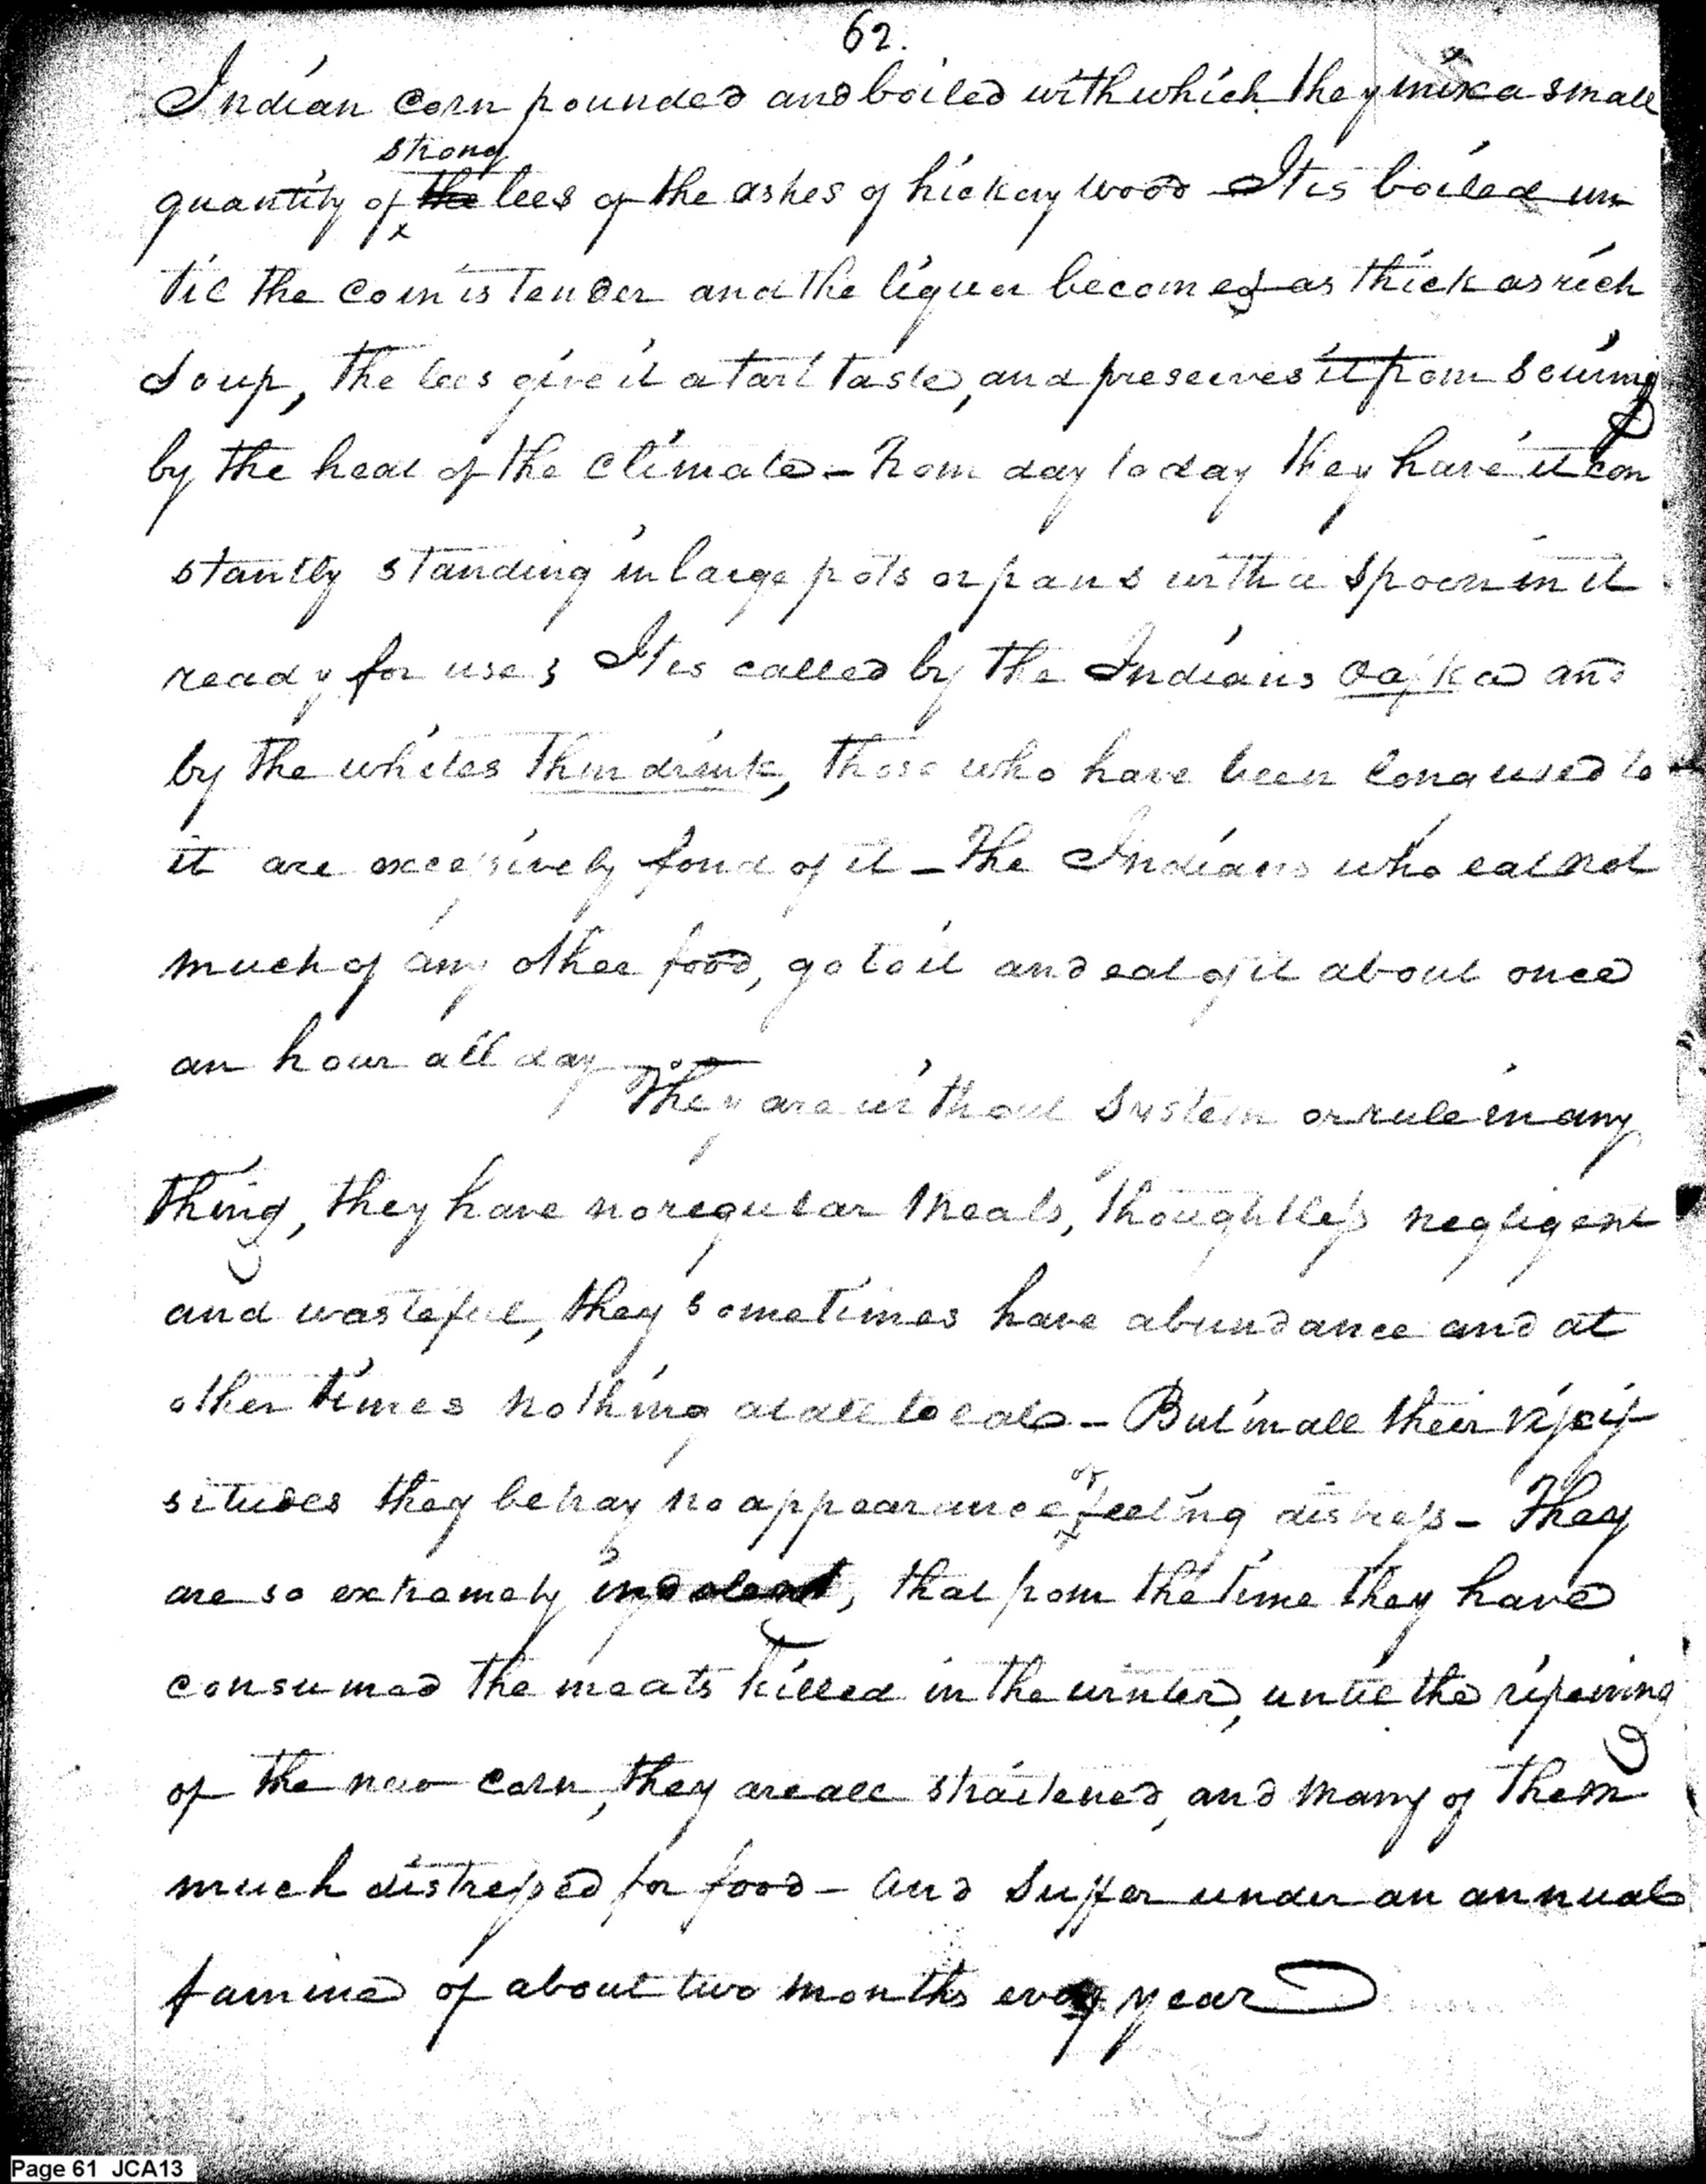 62.
Indian corn pounded and boiled with which they mix a small
strong
quantity of the lees of the ashes of hickory wood - It is boiled un
til the corn is tender and the liquer becomes as thick as rich
Soup, the lees give it a tart taste, and preserves it from souring
by the heat of the climate - From day to day they have it con
stantly standing in large pots or pans with a spoon in it
ready for use; It is called by the Indians Oafka and
by the whites Thin drink, those who have been long used to
it are excessively fond of it - The Indians who eat not
much of any other food, go to it and eat of it about once
an hour all day -
They are without system or rule in any
thing, they have no regular meals, thoughtless negligent
and wasteful, they sometimes have abundance and at
other times nothing at all to eat - But in all their vissis
or
situdes they betray no appearance feeling distress - They
are so extremely indolent, that from the time they have
consumed the meats killed in the winter, until the ripening
of the new corn, they are all straitened, and many of them
much distressed for food - and suffer under an annual
famine of about two months every year
Page 61 JCA13